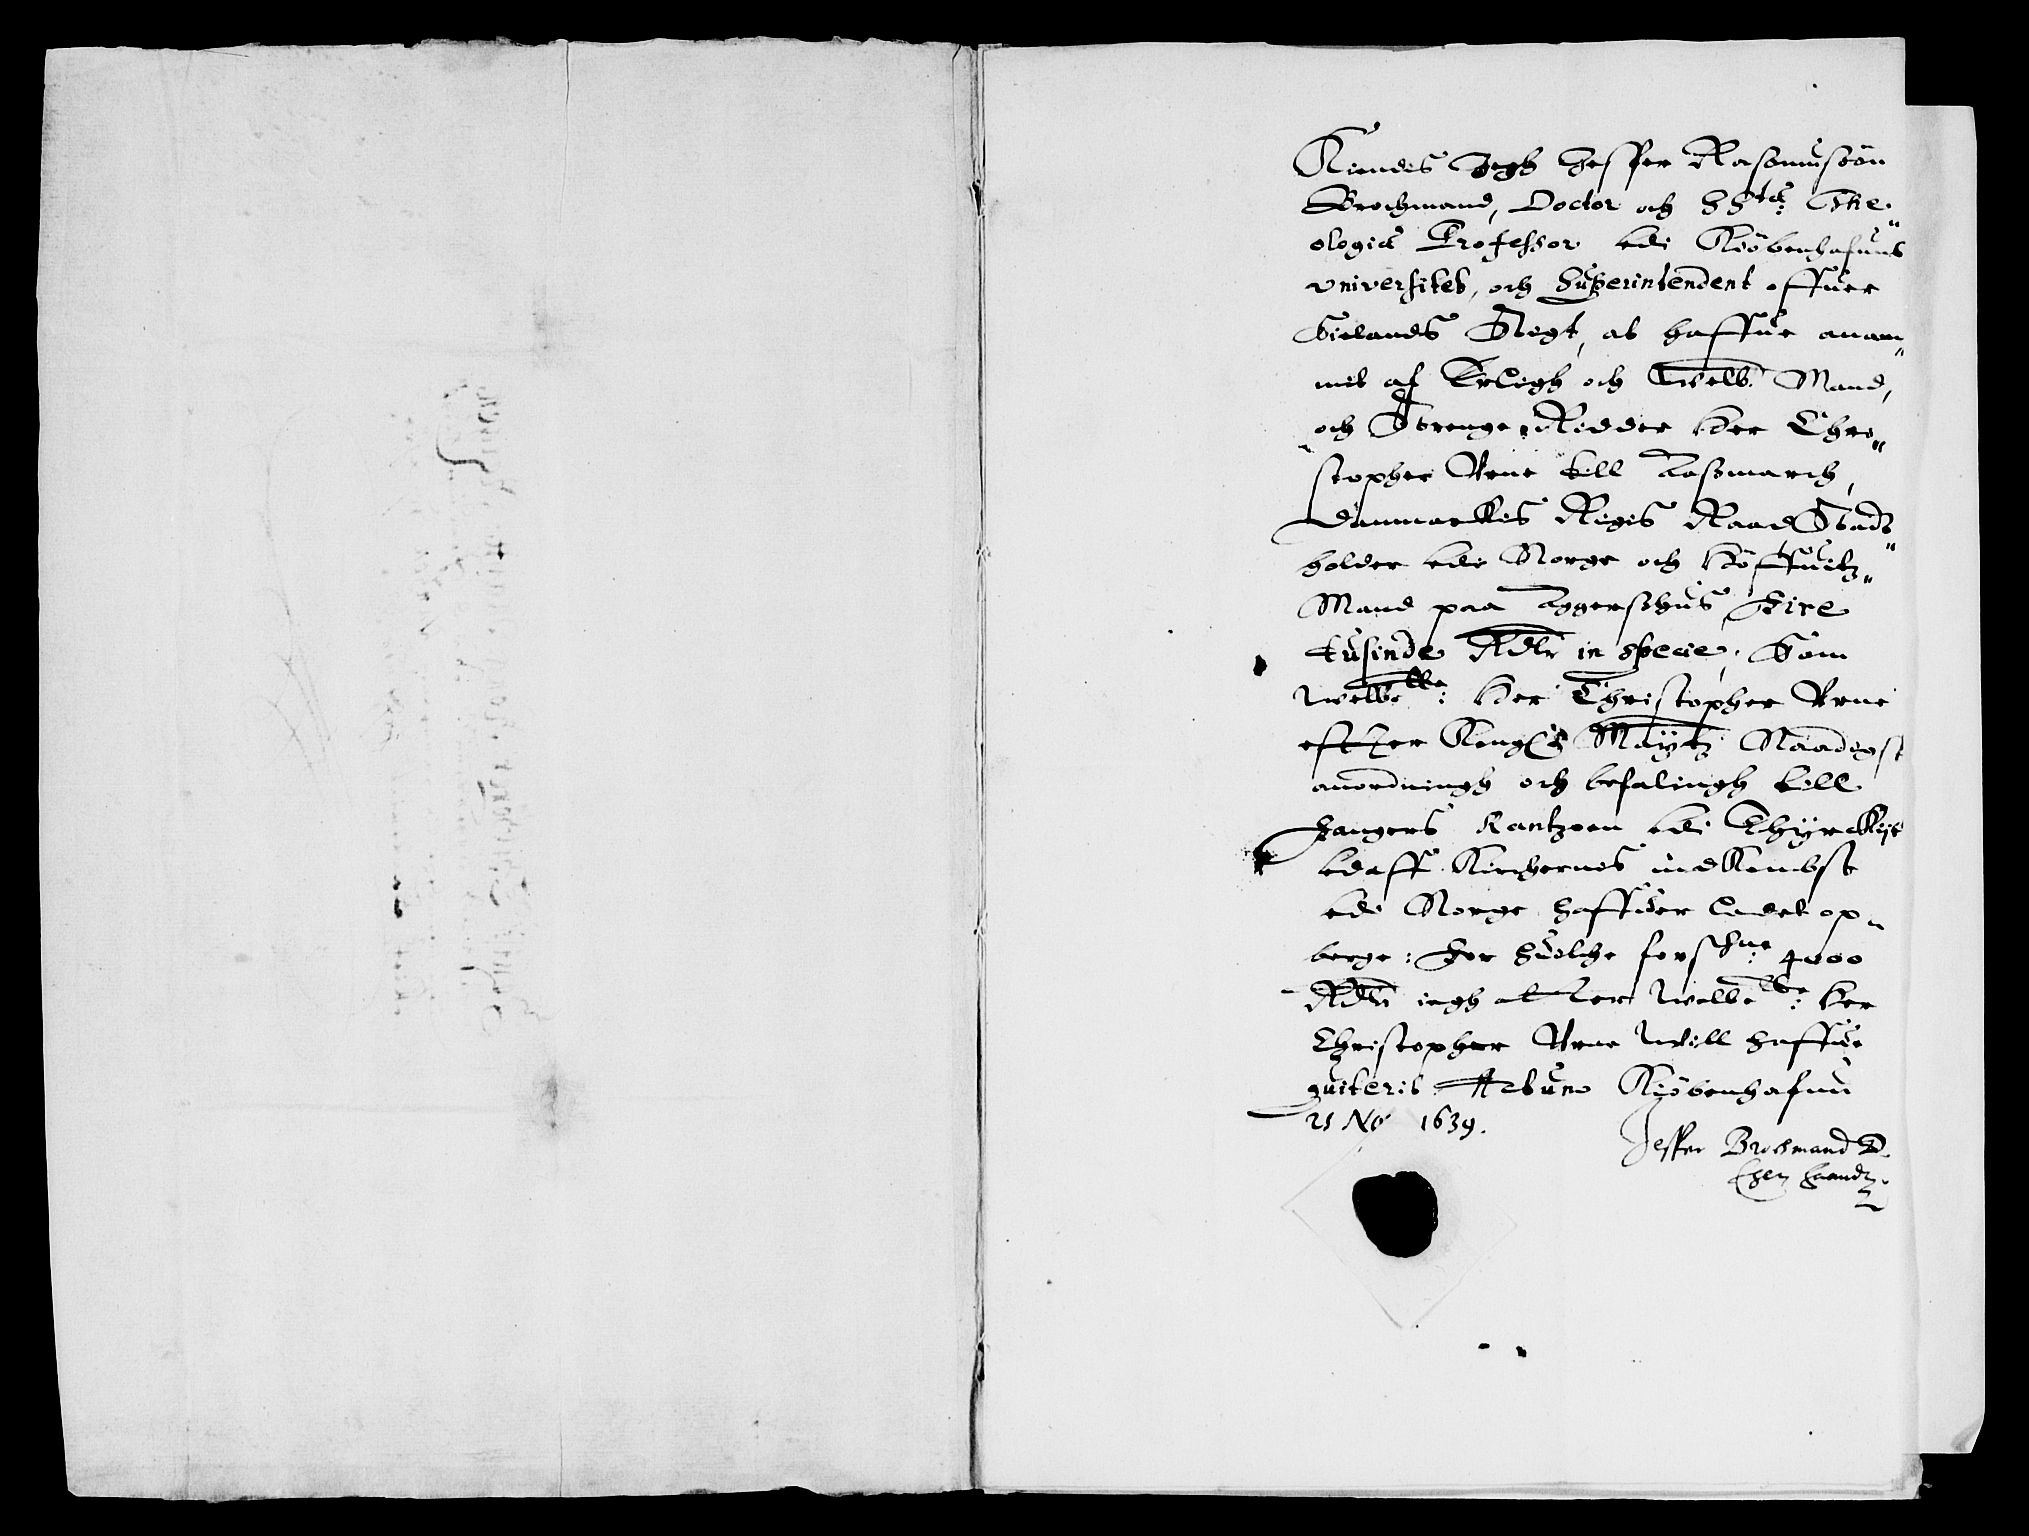 Kiendis Jegh Jesper Rasmussön
Brochmand, Doctor och SStæ: The„
ologiæ Professor udi Kiöbenhafuns
Vniversitet, och Superintendent offuer
Sielands Stigt, at haffue anam„
mit af Erligh och Welb: Mand,
och Strenge Ridder Her Chri„
stopher Vrne till Aasmarch,
Danmarckis Rigis Raad Stadt„
holder udi Norge och Höffuitz„
Mand paa Aggershus Fire
tusinde Rdlr in specie, Som
Welbe:te: Her Christopher Vrne
effter Kongs Maytz Naadigst
anordningh och befalingh till
fangers Rantzoen udi Thyrckijt
udaff Kirchernis indKombst
udi Norge haffuer ladet op„
berge: For huilche forschne: 4000
Rdlr iegh atter Welbe:te: Her
Christopher Vrne will haffue
quiterit. Actum Kiöbenhafun
21 No 1639.
Jesper Brochmand D.
Egen haandt.